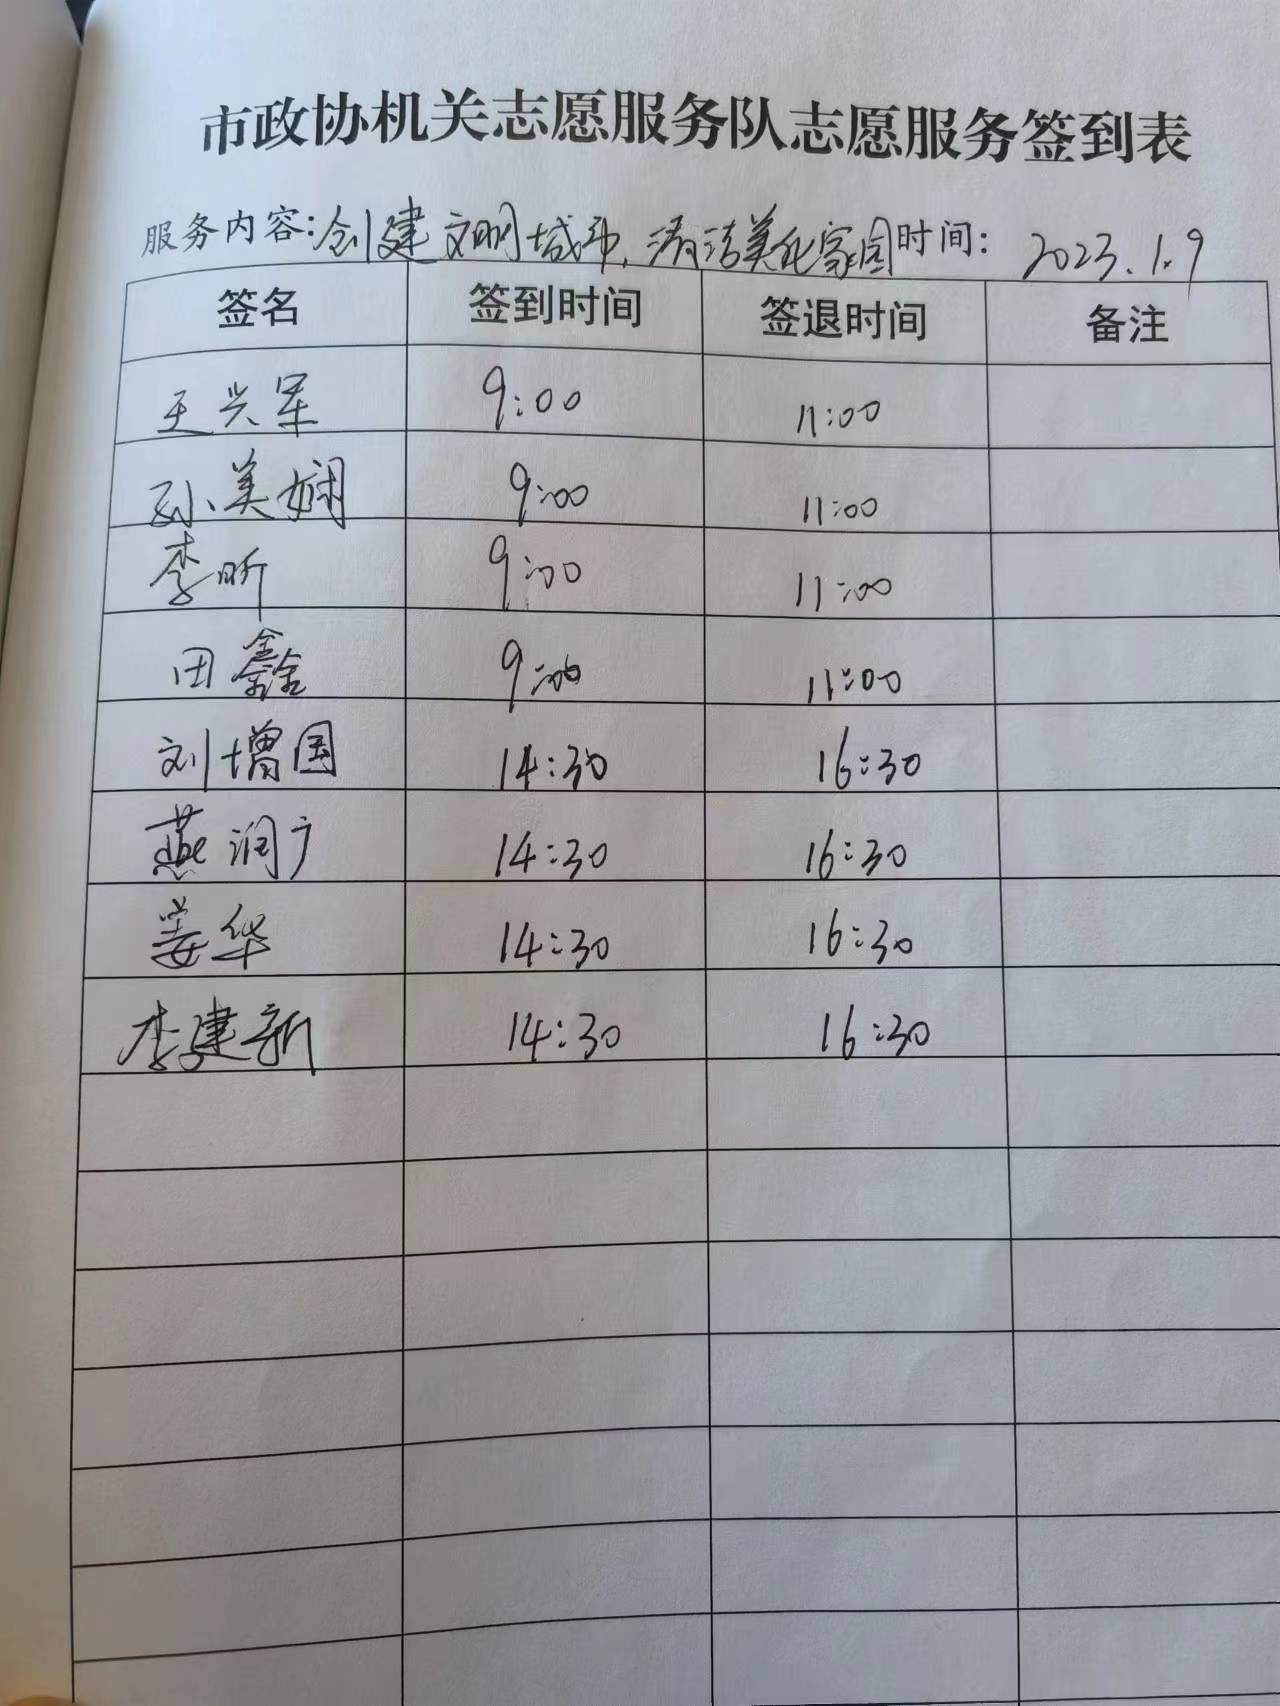 市政协机关志愿服务队志愿服务签到表
服务内容:创建文明城市,清洁美化家园时间: 2023.1.9
签名 签到时间 签退时间 备注
王兴军 9:00 11:00
孙美娴 9:00 11:00
李昕 9:00 11:00
田鑫 9:00 11:00
刘增国 14:30 16:30
燕润广 14:30 16:30
姜华 14:30 16:30
李建新 14:30 16:30